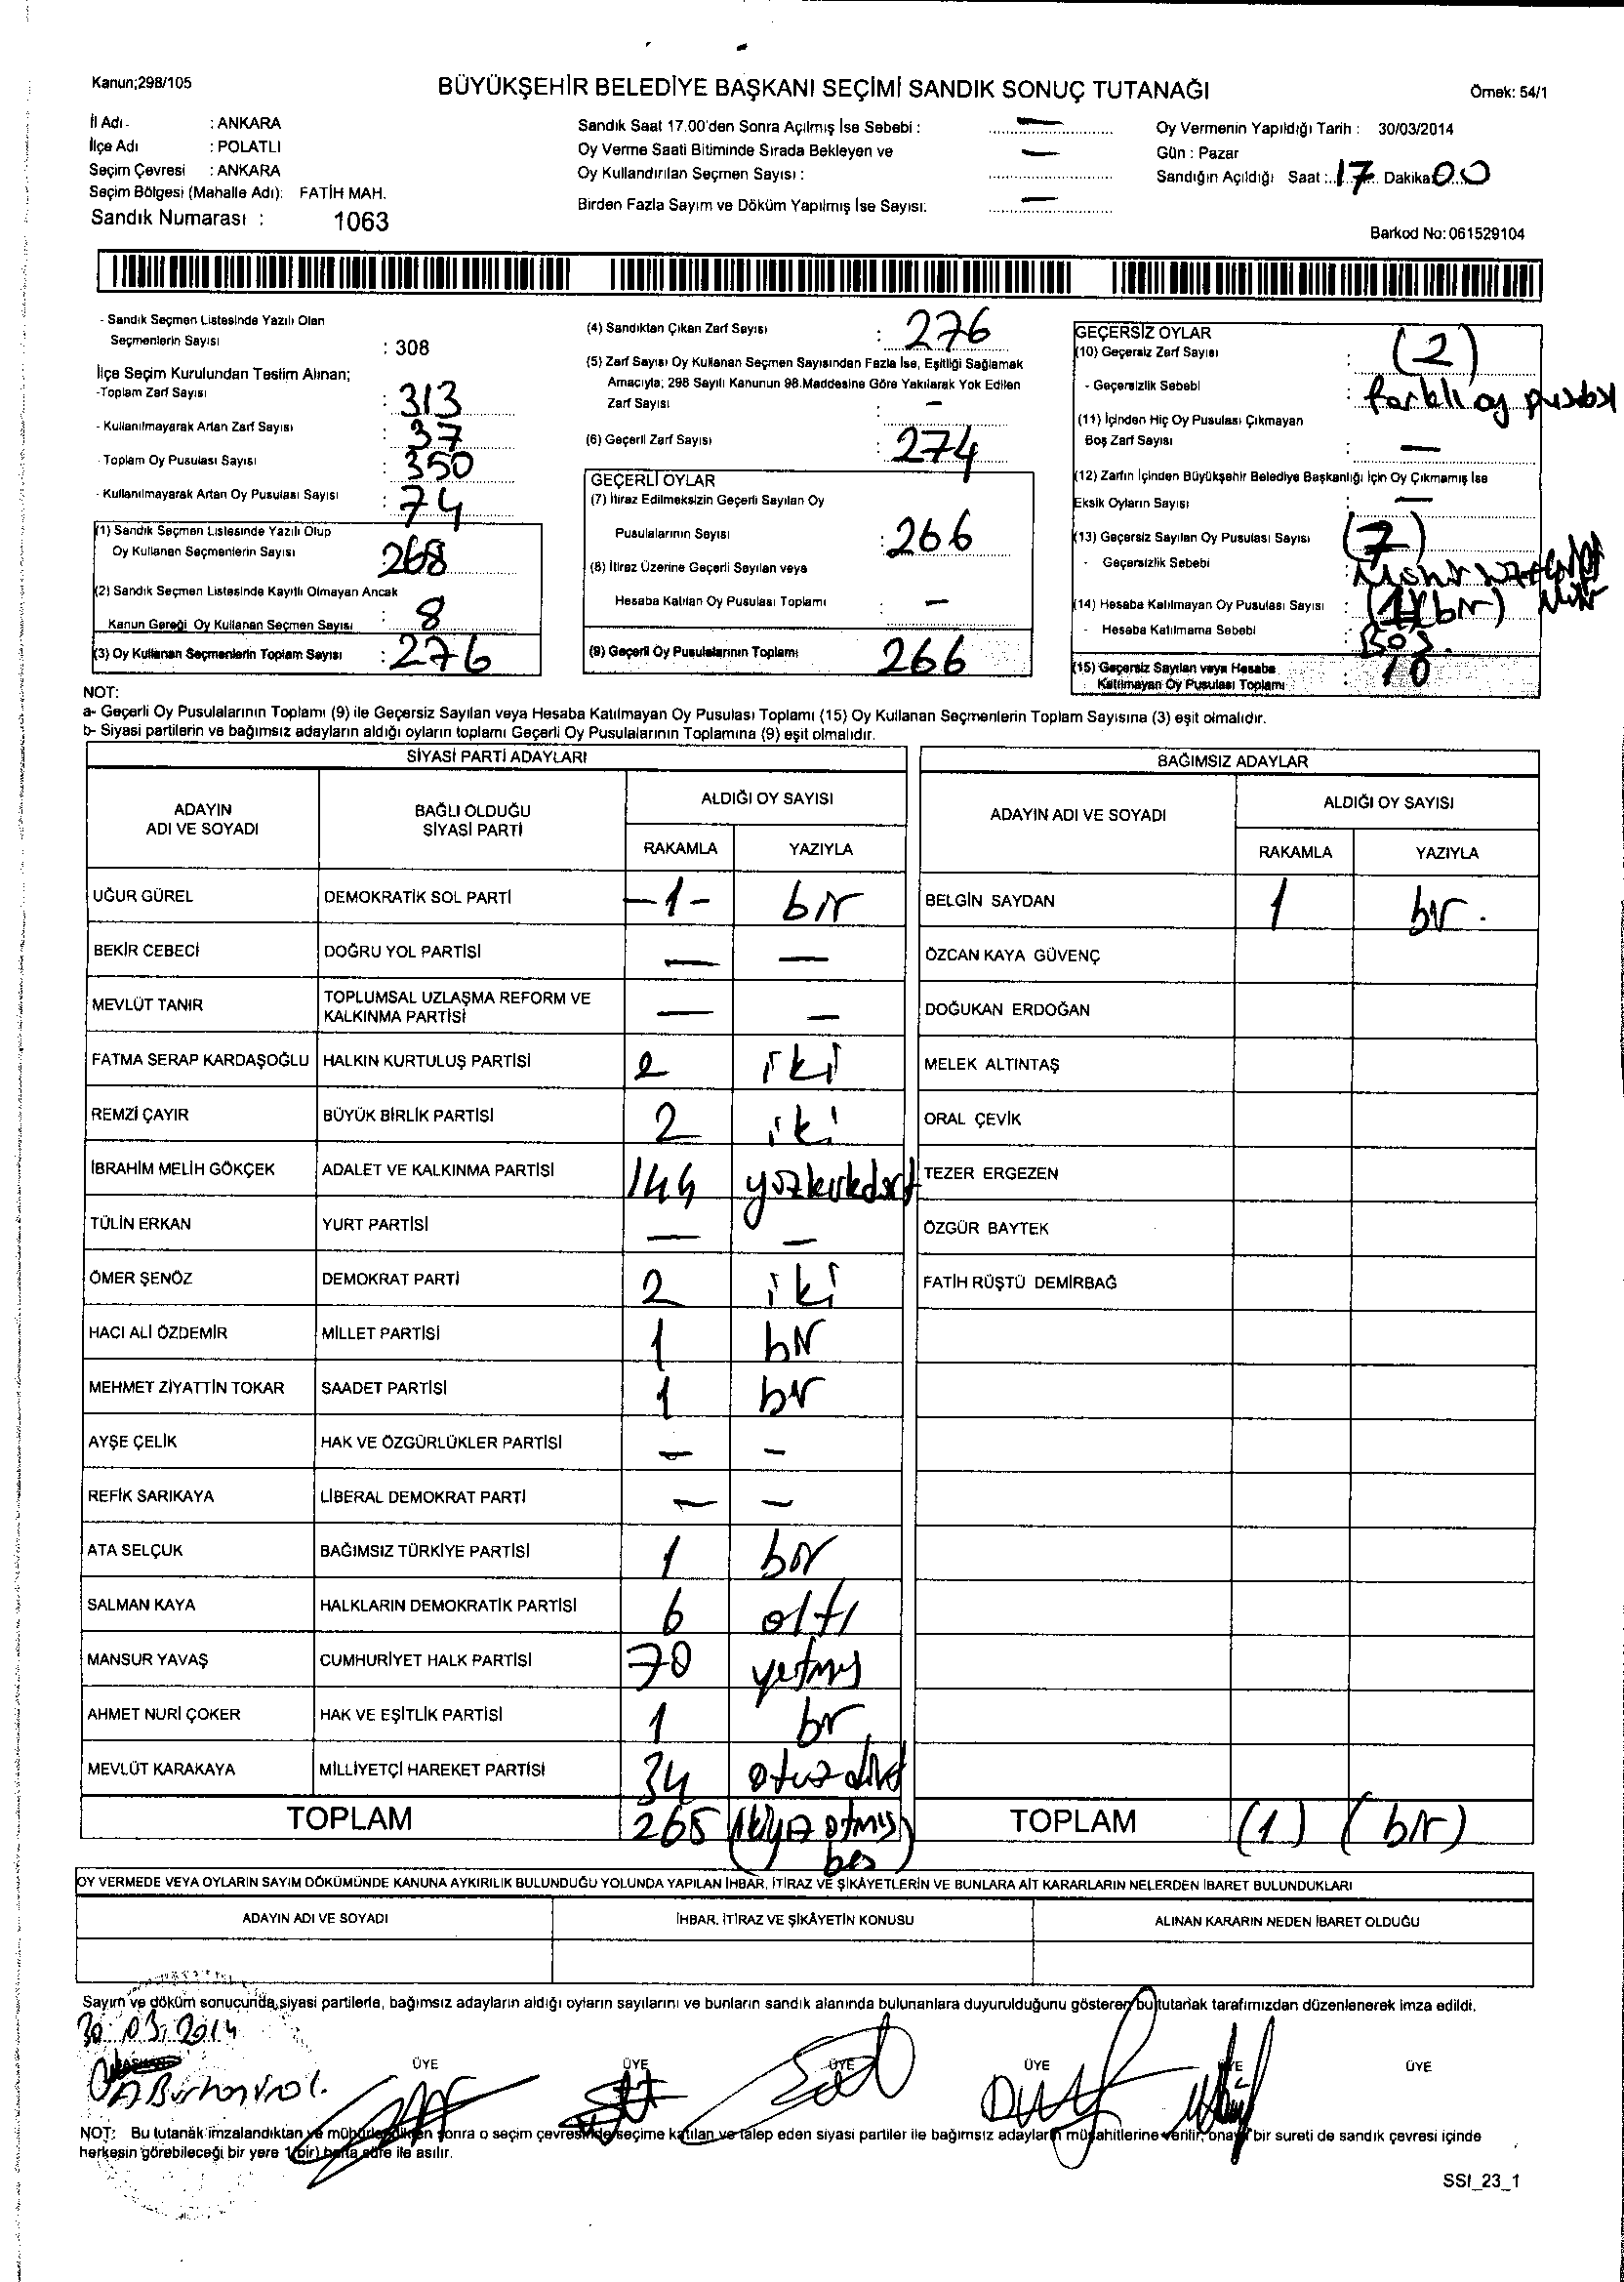 Kanun;298/105
BÜYÜKŞEHİR BELEDİYE BAŞKANI SEÇİMİ SANDIK SONUÇ TUTANAĞI
Örnek: 54/1
İl Adı : ANKARA
İlçe Adı : POLATLI
Seçim Çevresi : ANKARA
Seçim Bölgesi (Mahalle Adı): FATİH MAH.
Sandık Numarası : 1063
Sandık Saat 17.00'den Sonra Açılmış İse Sebebi : —
Oy Verme Saati Bitiminde Sırada Bekleyen ve
Oy Kullandırılan Seçmen Sayısı : —
Birden Fazla Sayım ve Döküm Yapılmış İse Sayısı: —
Oy Vermenin Yapıldığı Tarih : 30/03/2014
Gün : Pazar
Sandığın Açıldığı Saat : 17 Dakika 00
Barkod No: 061529104
- Sandık Seçmen Listesinde Yazılı Olan
Seçmenlerin Sayısı : 308
İlçe Seçim Kurulundan Teslim Alınan;
-Toplam Zarf Sayısı : 313
- Kullanılmayarak Artan Zarf Sayısı : 37
- Toplam Oy Pusulası Sayısı : 350
- Kullanılmayarak Artan Oy Pusulası Sayısı : 74
(1) Sandık Seçmen Listesinde Yazılı Olup
Oy Kullanan Seçmenlerin Sayısı 268
(2) Sandık Seçmen Listesinde Kayıtlı Olmayan Ancak
Kanun Gereği Oy Kullanan Seçmen Sayısı : 8
(3) Oy Kullanan Seçmenlerin Toplam Sayısı : 276
(4) Sandıktan Çıkan Zarf Sayısı : 276
(5) Zarf Sayısı Oy Kullanan Seçmen Sayısından Fazla İse, Eşitliği Sağlamak
Amacıyla; 298 Sayılı Kanunun 98.Maddesine Göre Yakılarak Yok Edilen
Zarf Sayısı : —
(6) Geçerli Zarf Sayısı : 274
GEÇERLİ OYLAR
(7) İtiraz Edilmeksizin Geçerli Sayılan Oy
Pusulalarının Sayısı : 266
(8) İtiraz Üzerine Geçerli Sayılan veya
Hesaba Katılan Oy Pusulası Toplamı : —
(9) Geçerli Oy Pusulalarının Toplamı 266
GEÇERSİZ OYLAR
(10) Geçersiz Zarf Sayısı : (2)
- Geçersizlik Sebebi : farklı oy pusulası
(11) İçinden Hiç Oy Pusulası Çıkmayan
Boş Zarf Sayısı : —
(12) Zarfın İçinden Büyükşehir Belediye Başkanlığı İçin Oy Çıkmamış İse
Eksik Oyların Sayısı : —
(13) Geçersiz Sayılan Oy Pusulası Sayısı : (7)
- Geçersizlik Sebebi :
(14) Hesaba Katılmayan Oy Pusulası Sayısı : (1)(bir)
- Hesaba Katılmama Sebebi : Boş.
(15) Geçersiz Sayılan veya Hesaba
Katılmayan Oy Pusulası Toplamı : 10
NOT:
a- Geçerli Oy Pusulalarının Toplamı (9) ile Geçersiz Sayılan veya Hesaba Katılmayan Oy Pusulası Toplamı (15) Oy Kullanan Seçmenlerin Toplam Sayısına (3) eşit olmalıdır.
b- Siyasi partilerin ve bağımsız adayların aldığı oyların toplamı Geçerli Oy Pusulalarının Toplamına (9) eşit olmalıdır.
SİYASİ PARTİ ADAYLARI
ADAYIN ADI VE SOYADI
BAĞLI OLDUĞU SİYASİ PARTİ
ALDIĞI OY SAYISI
RAKAMLA YAZIYLA
UĞUR GÜREL DEMOKRATİK SOL PARTİ -1- bir
BEKİR CEBECİ DOĞRU YOL PARTİSİ — —
MEVLÜT TANIR TOPLUMSAL UZLAŞMA REFORM VE KALKINMA PARTİSİ — —
FATMA SERAP KARDAŞOĞLU HALKIN KURTULUŞ PARTİSİ 2 iki
REMZİ ÇAYIR BÜYÜK BİRLİK PARTİSİ 2 iki
İBRAHİM MELİH GÖKÇEK ADALET VE KALKINMA PARTİSİ 144 yüzkırkdört
TÜLİN ERKAN YURT PARTİSİ — —
ÖMER ŞENÖZ DEMOKRAT PARTİ 2 iki
HACI ALİ ÖZDEMİR MİLLET PARTİSİ 1 bir
MEHMET ZİYATTİN TOKAR SAADET PARTİSİ 1 bir
AYŞE ÇELİK HAK VE ÖZGÜRLÜKLER PARTİSİ — —
REFİK SARIKAYA LİBERAL DEMOKRAT PARTİ — —
ATA SELÇUK BAĞIMSIZ TÜRKİYE PARTİSİ 1 bir
SALMAN KAYA HALKLARIN DEMOKRATİK PARTİSİ 6 altı
MANSUR YAVAŞ CUMHURİYET HALK PARTİSİ 70 yetmiş
AHMET NURİ ÇOKER HAK VE EŞİTLİK PARTİSİ 1 bir
MEVLÜT KARAKAYA MİLLİYETÇİ HAREKET PARTİSİ 34 otuzdört
TOPLAM 265 (ikiyüz atmış beş)
BAĞIMSIZ ADAYLAR
ADAYIN ADI VE SOYADI
ALDIĞI OY SAYISI
RAKAMLA YAZIYLA
BELGİN SAYDAN 1 bir.
ÖZCAN KAYA GÜVENÇ
DOĞUKAN ERDOĞAN
MELEK ALTINTAŞ
ORAL ÇEVİK
TEZER ERGEZEN
ÖZGÜR BAYTEK
FATİH RÜŞTÜ DEMİRBAĞ
TOPLAM (1) (bir)
OY VERMEDE VEYA OYLARIN SAYIM DÖKÜMÜNDE KANUNA AYKIRILIK BULUNDUĞU YOLUNDA YAPILAN İHBAR, İTİRAZ VE ŞİKÂYETLERİN VE BUNLARA AİT KARARLARIN NELERDEN İBARET BULUNDUKLARI
ADAYIN ADI VE SOYADI
İHBAR, İTİRAZ VE ŞİKÂYETİN KONUSU
ALINAN KARARIN NEDEN İBARET OLDUĞU
Sayım ve döküm sonucunda, siyasi partilerle, bağımsız adayların aldığı oyların sayılarını ve bunların sandık alanında bulunanlara duyurulduğunu gösteren bu tutanak tarafımızdan düzenlenerek imza edildi.
30.03.2014
ÜYE ÜYE ÜYE ÜYE ÜYE ÜYE
NOT: Bu tutanak imzalandıktan ve mühürlendikten sonra o seçim çevresinde seçime katılan ve talep eden siyasi partiler ile bağımsız adayların müşahitlerine verilir, onaylı bir sureti de sandık çevresi içinde
herkesin görebileceği bir yere 1(bir) hafta süre ile asılır.
SSI_23_1